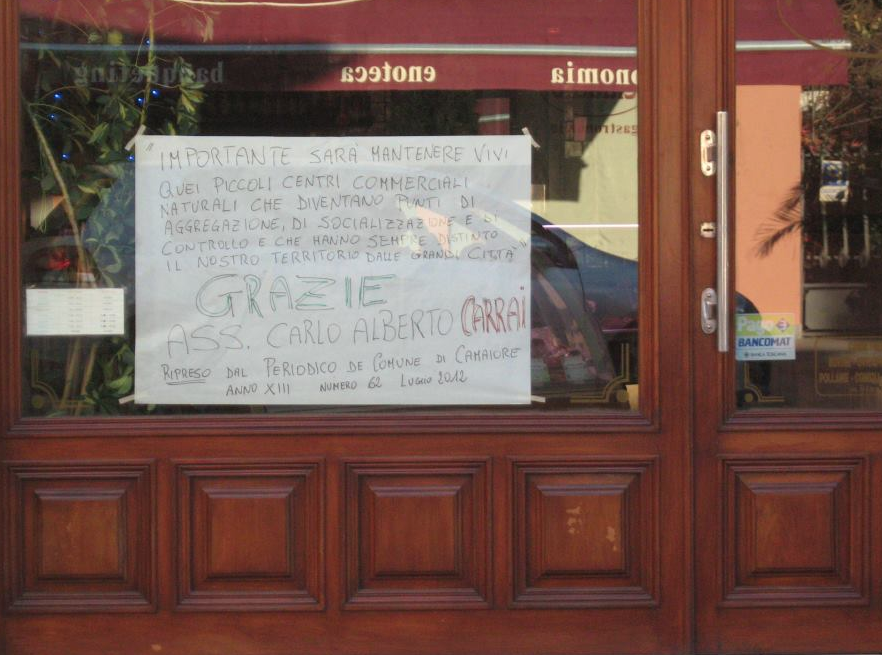 banqueting
enoteca
onomia
gastronomie
" IMPORTANTE SARÀ MANTENERE VIVI
QUEI PICCOLI CENTRI COMMERCIALI
NATURALI CHE DIVENTANO PUNTI DI
AGGREGAZIONE, DI SOCIALIZZAZIONE E DI
CONTROLLO E CHE HANNO SEMPRE DISTINTO
IL NOSTRO TERRITORIO DALLE GRANDI CITTÀ "
GRAZIE
ASS. CARLO ALBERTO CIARRAI
RIPRESO DAL PERIODICO DE COMUNE DI CAMAIORE
ANNO XIII NUMERO 62 LUGLIO 2012
Pago
BANCOMAT